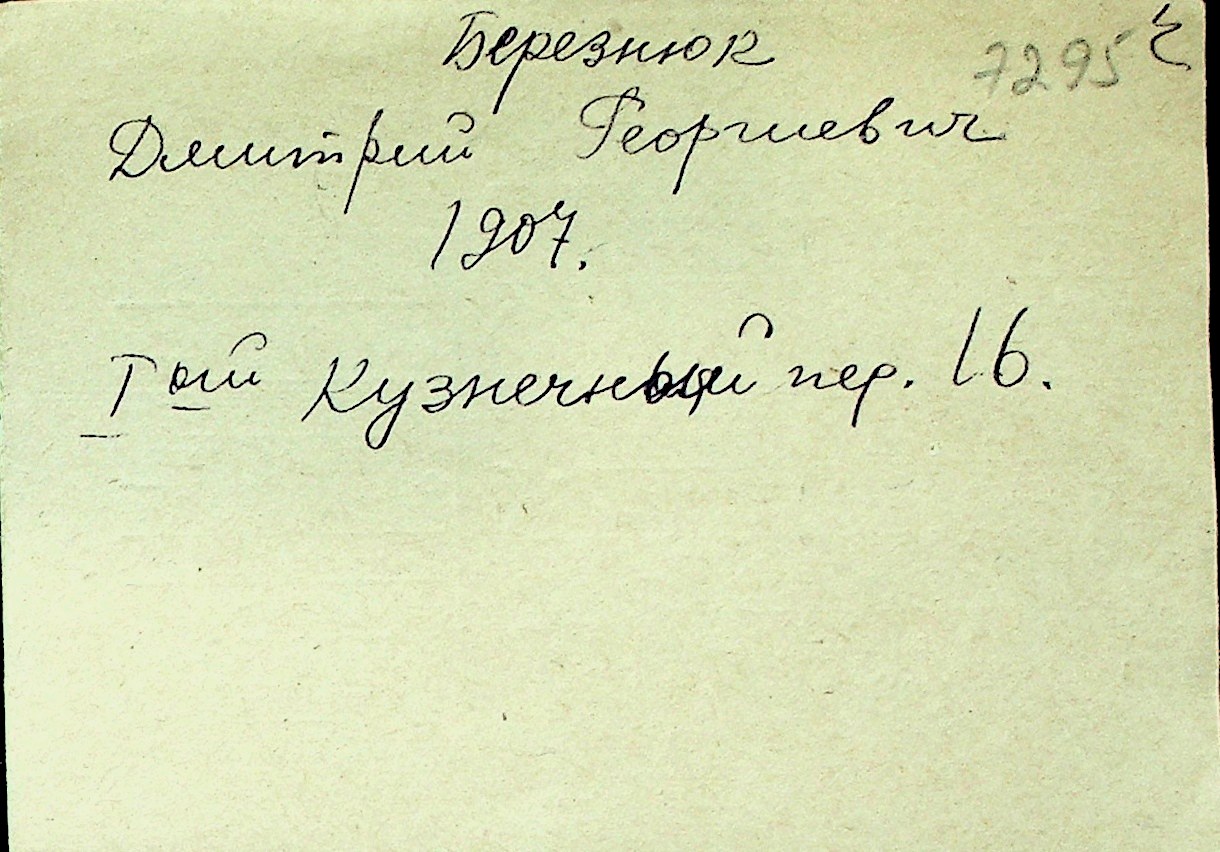 Березнюк
7295
Дмитрий Георгиевич
1907.
I ый Кузнечный пер. 16.